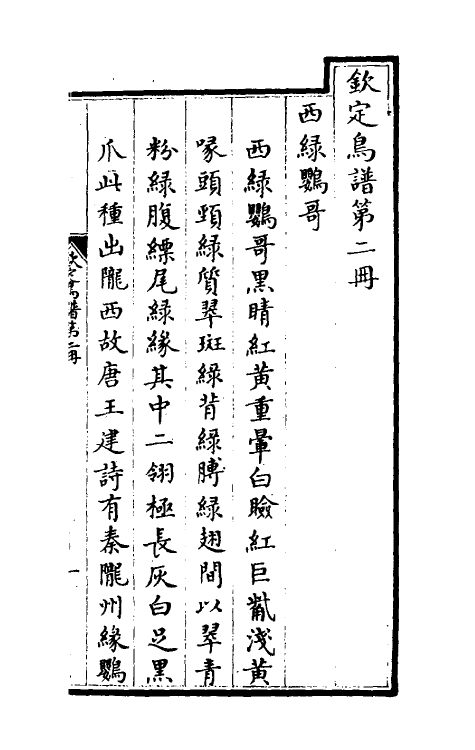 欽定鳥譜第二冊
西綠鸚哥
西綠鸚哥黑睛紅黃重暈白臉紅巨觜淺黃
喙頭頸綠質翠斑綠背綠膊綠翅間以翠青
粉綠腹縹尾綠緣其中二翎極長灰白足黑
爪此種出隴西故唐王建詩有秦隴州緣鸚
鳥譜第二冊
一